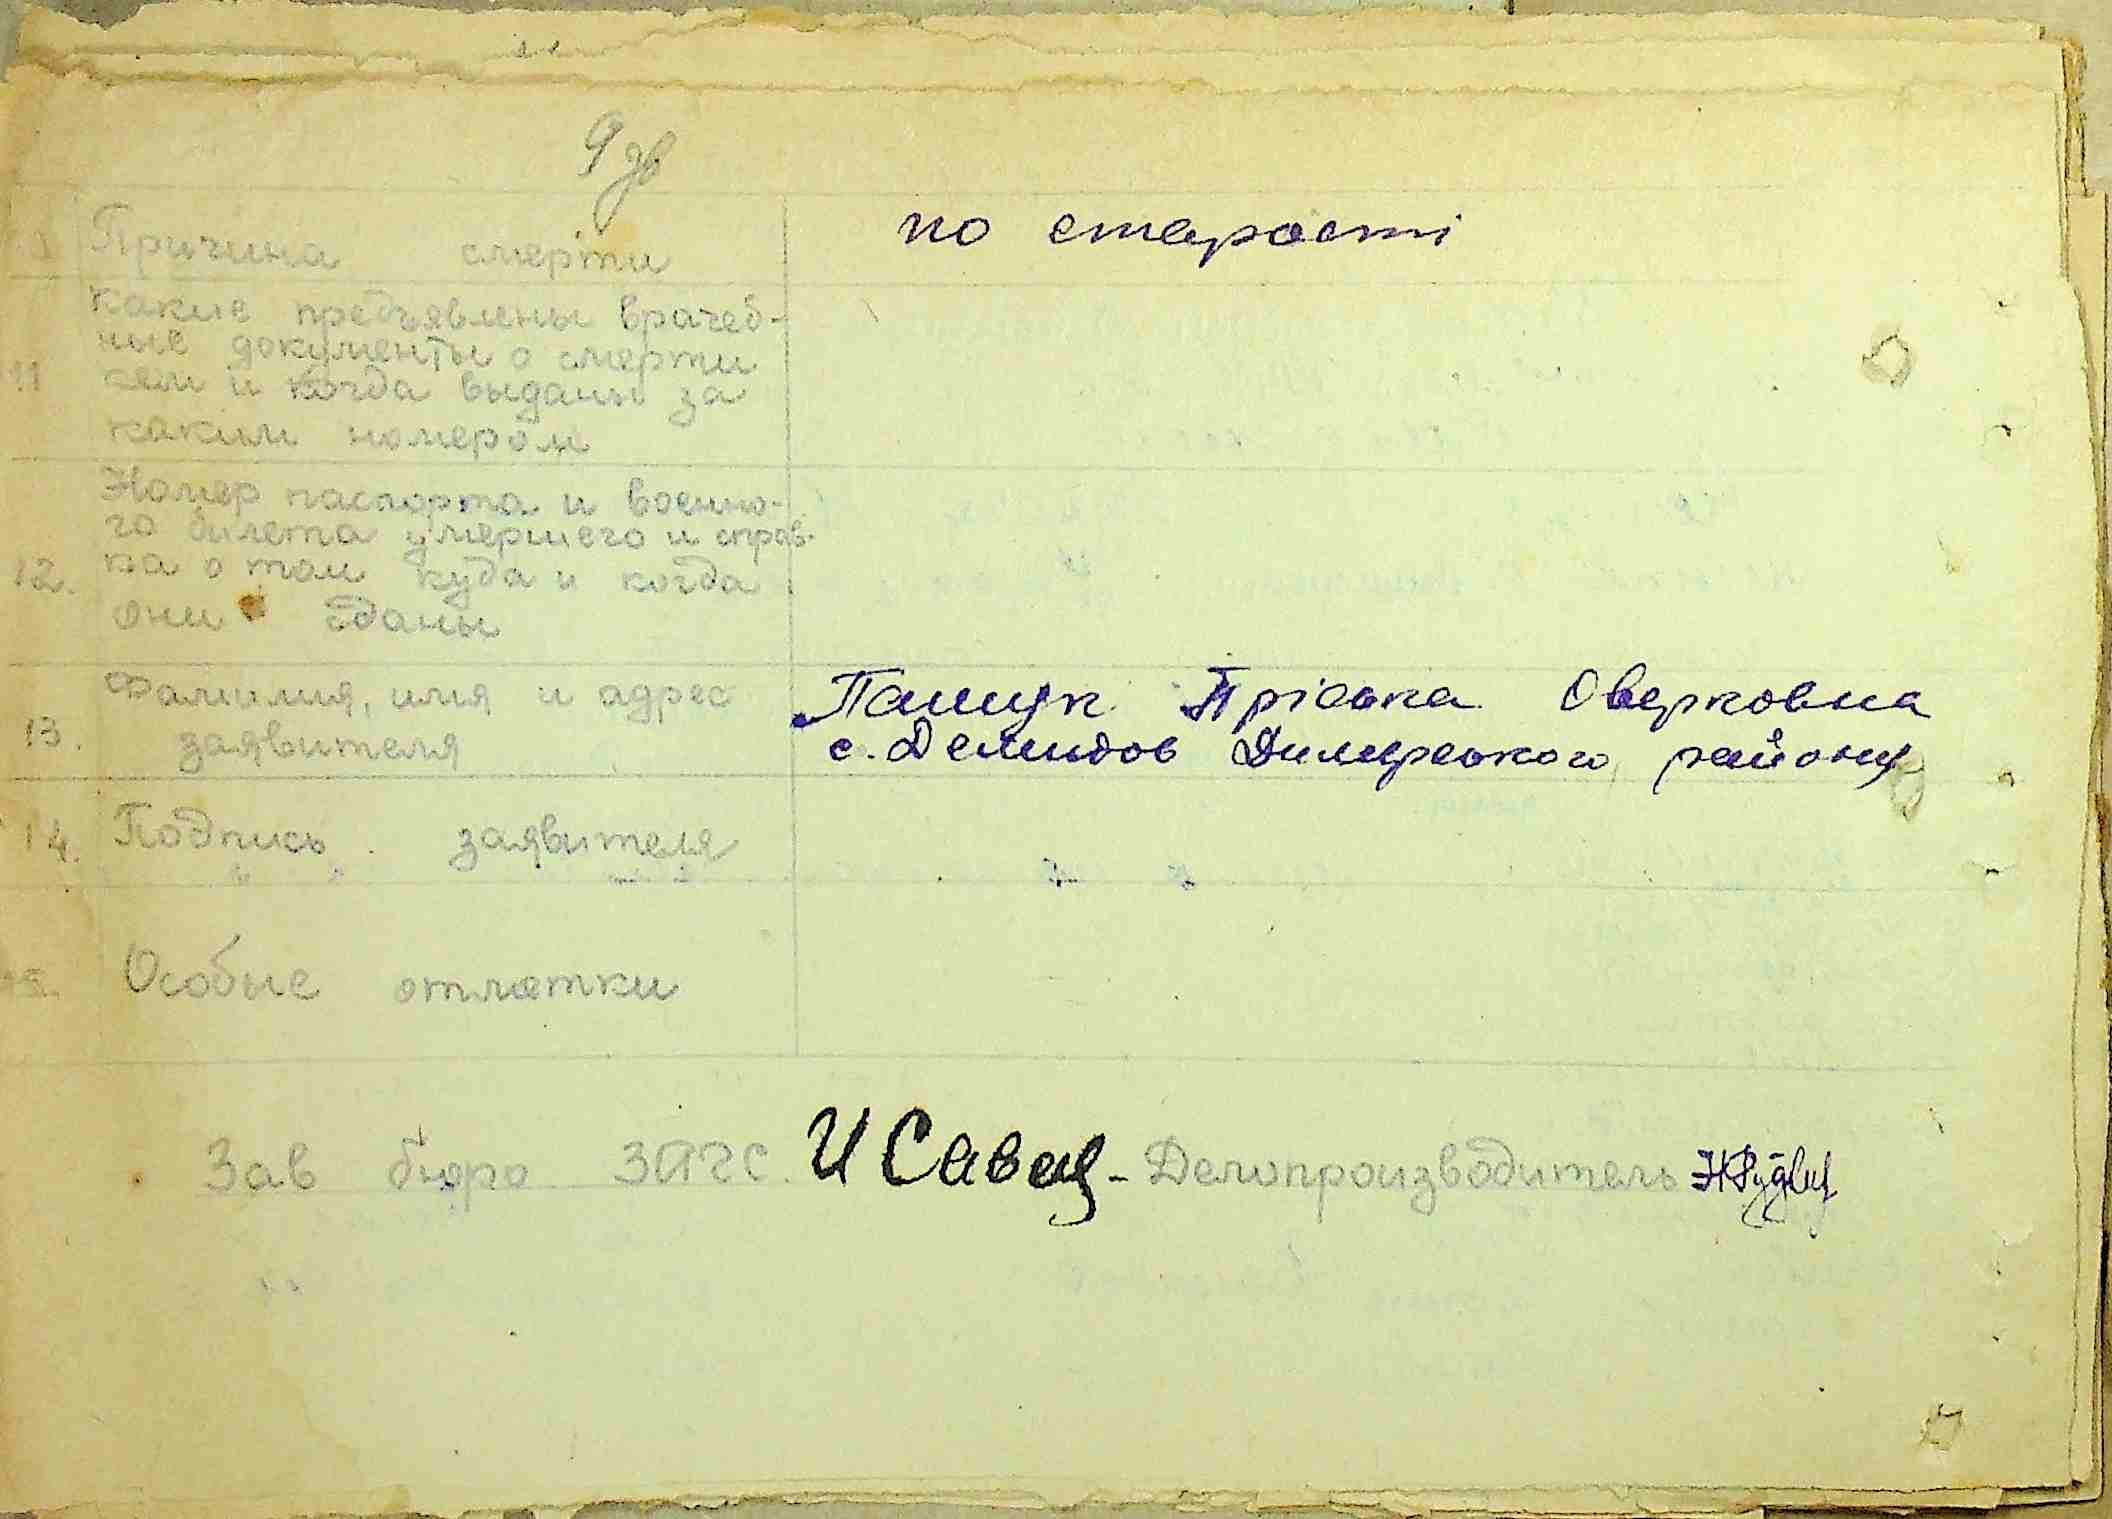 9 зв
Причина смерти по старості
11 какие предъявлены врачеб-
ные документы о смерти
кем и когда выданы за
каким номером
Номер паспорта и военно-
го билета умершего и справ-
12. ка о том куда и когда
они сданы
Фамилия, имя и адрес Пашук Пріська Оверковна
13. заявителя с. Демидов Димерського району
14. Подпись заявителя
Особые отметки
Зав бюро ЗАГС. И Савец - Делопроизводитель